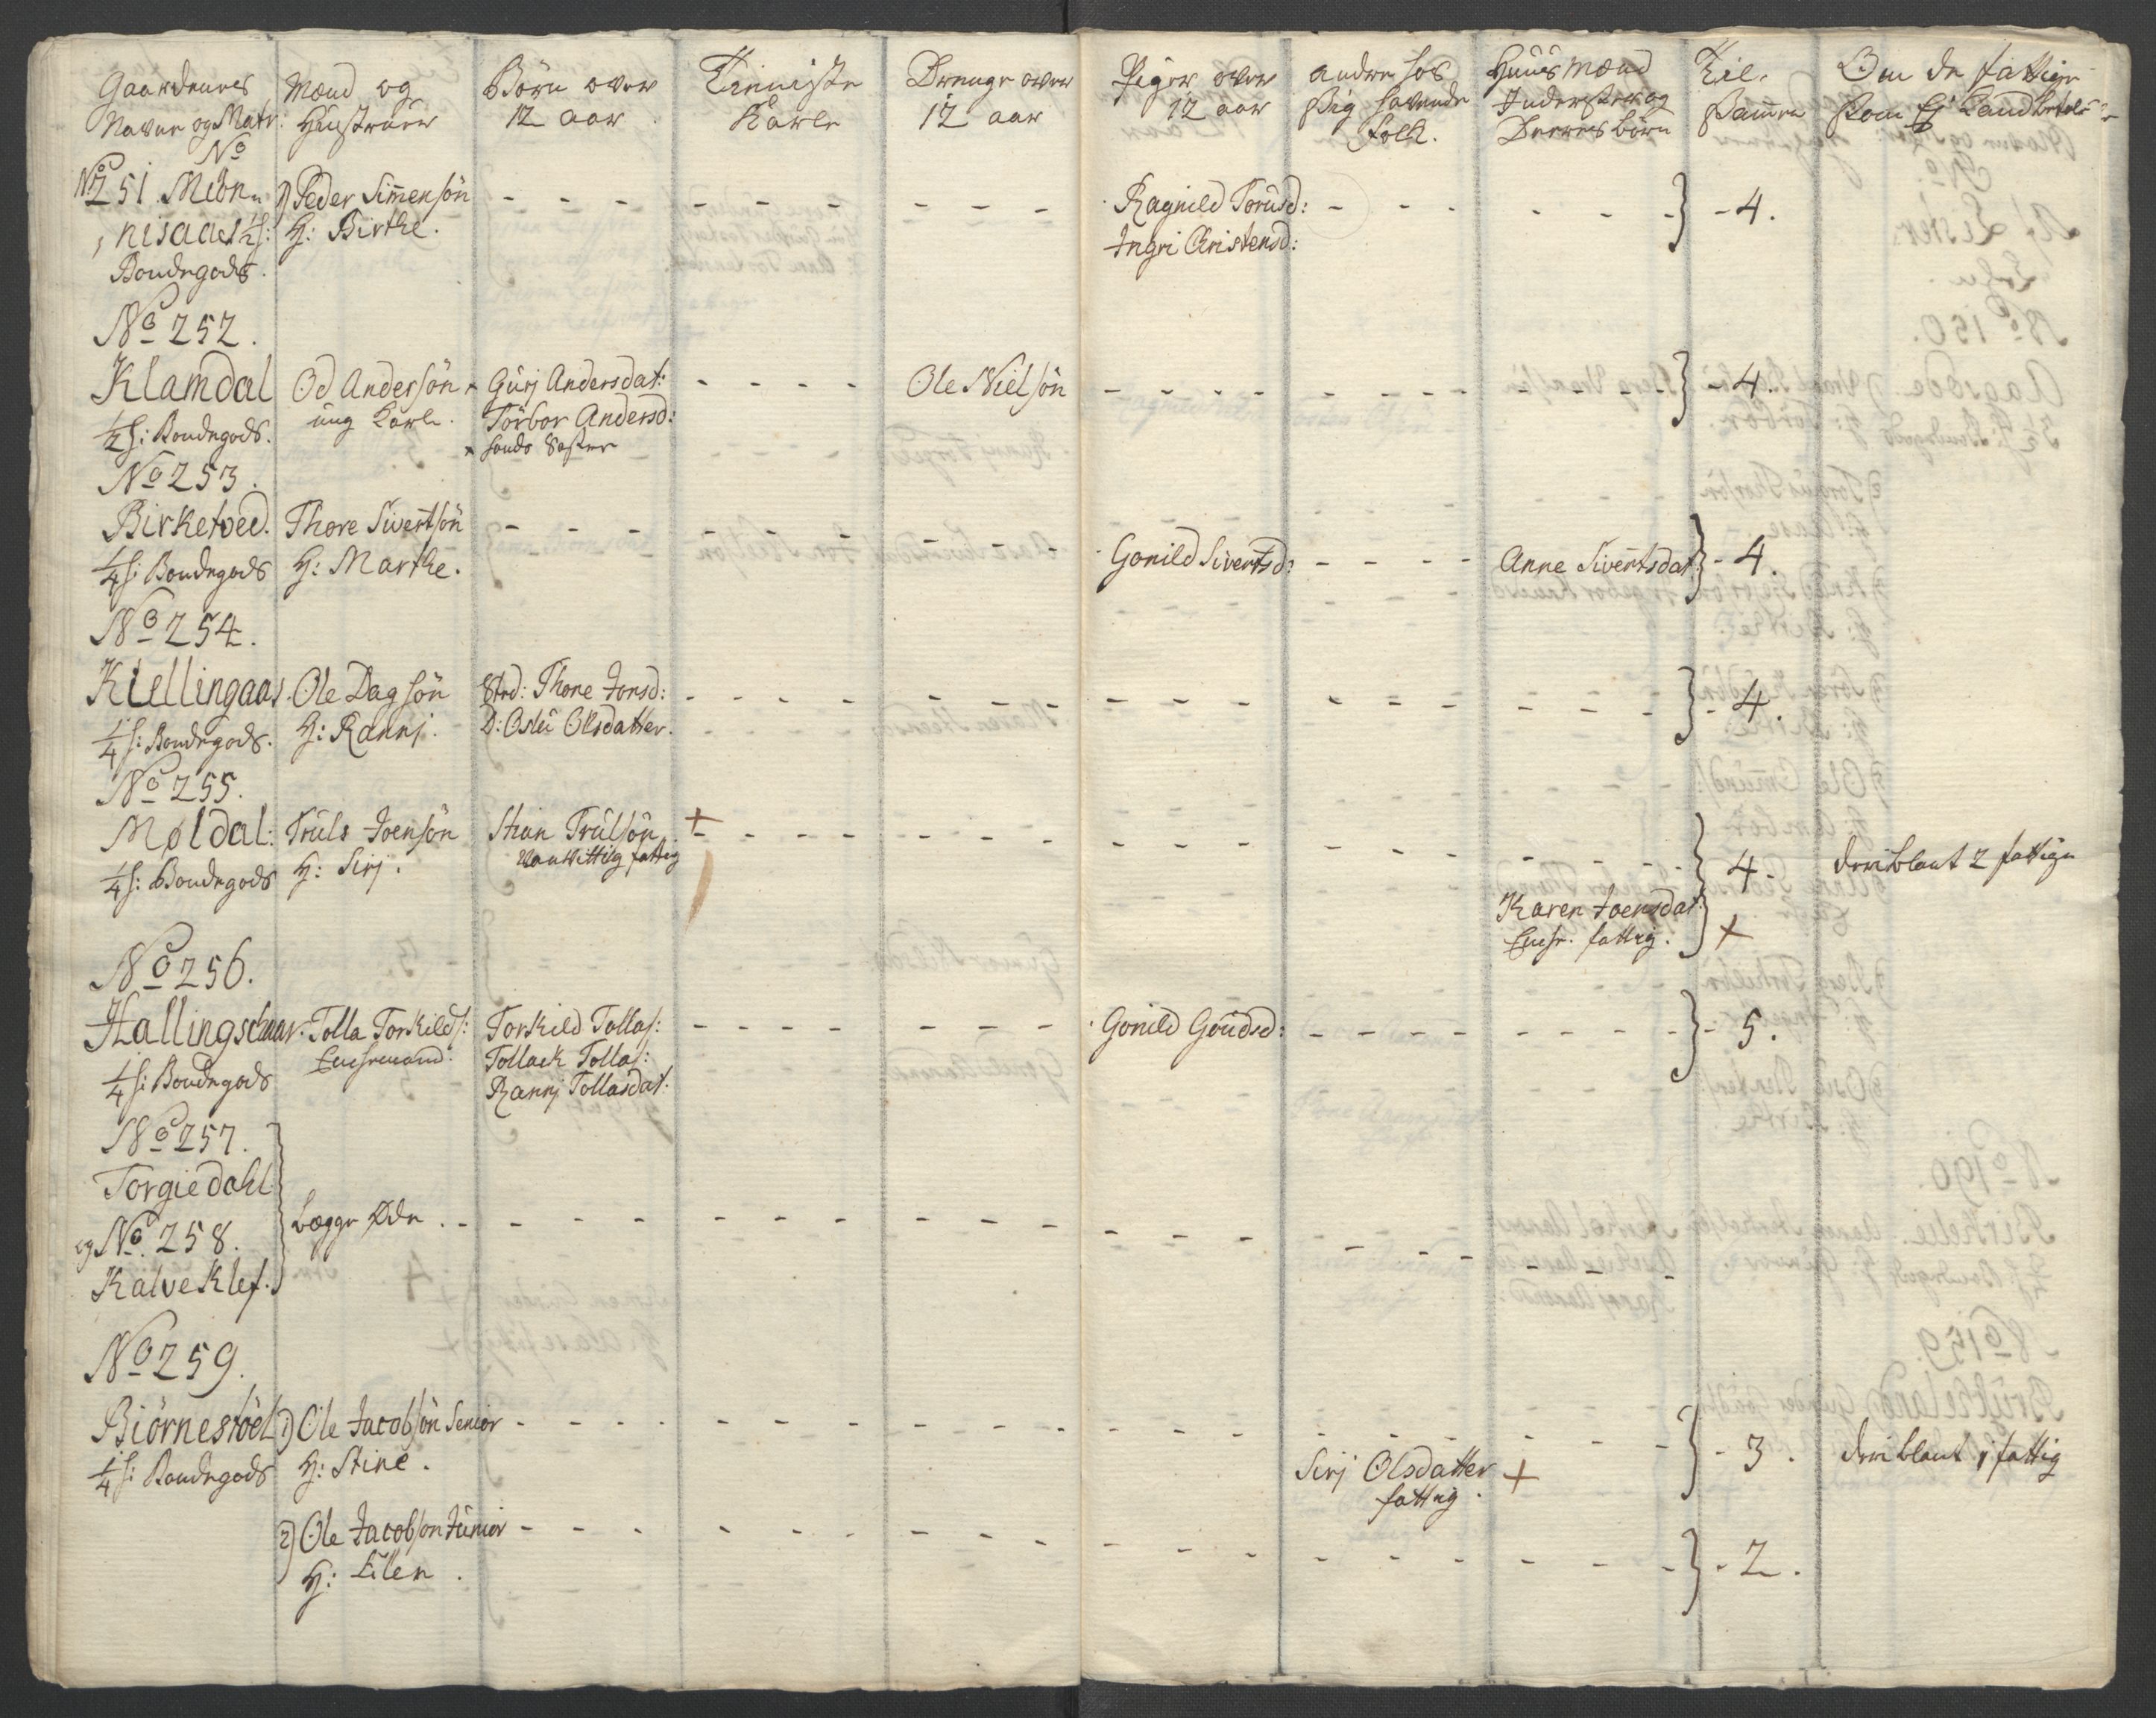 Gaardenes
Navne og Matr:
No
Mænd og
Hüstruer
Börn over
12 aar
Tienniste
Karle
Drenge over
12 aar
Piger over
12 aar
andre hos
Sig havende
Folk.
Huus Mænd
Inderster og
Deres börn
Til-
Sam̄en
Om de fattige
Som Ej Kand betale
No 251 Miön=
nisaas 1/2 S:
Bondegods.
1) Peder Sim̄ensön
H: Birthe.
Ragnild Torusd:
Ingri Christensd:
4.
No 252.
Klamdal
1/2 S: Bondegods.
Od Andersön
ung Karl.
Gurj Andersdat:
Torbor Andersd:
hands Søster
Ole Nielsön
4.
No 253.
Birketved.
1/4 S: Bondegods
Thore Sivertsön
H: Marthe.
Gonild Sivertsd:
Anne Sivertsdat:
4.
No 254.
Kiellingaas.
1/4 S: Bondegods.
Ole Dagsön
H: Rannj.
Stvd: Thone Jonsd:
D: Oslü Olsdatter.
4.
No 255.
Møldal:
1/4 S: Bondegods
Truls Joensön
H: Sirj.
Stian Trulsön +
Vanvittig fattig
Karen Joensdat:
Enche. fattig. +
4.
deriblant 2 fattige
No 256.
Hallingschaar.
1/4 S: Bondegods
Tolla Torkilds:
Enchemand.
Torkild Tollas:
Tollack Tollas:
Rannj Tollasdat:
Gonild Goudsd:
5.
No 257.
Torgiedahl
og No. 258.
Kalveklef.
begge Øde.
No 259.
Biörnestöel
1/4 S: Bondegods
1) Ole Jacobsön Senior
H: Stine.
Sirj Olsdatter +
fattig.
3.
deriblant 1 fattig
2) Ole Jacobsön Junior
H: Eilen.
2.